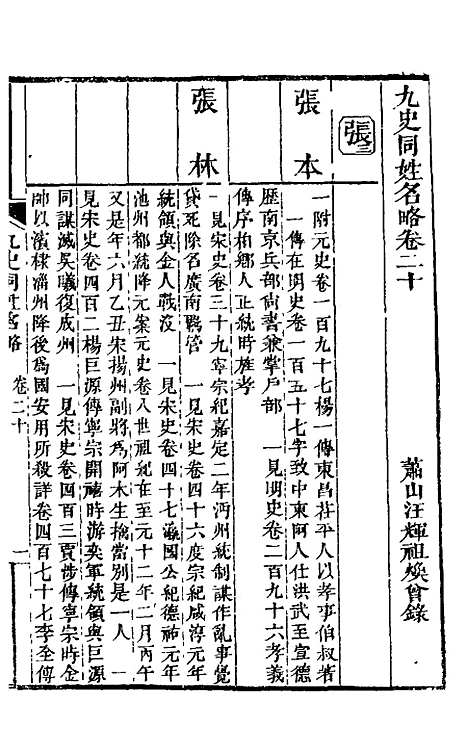 九史同姓名略卷二十
蕭山汪輝祖煥曾錄
張三
張本
一附元史卷一百九十七楊一傳東昌茌平人以孝事伯叔著
一傳在明史卷一百五十七字致中東阿人仕洪武至宣德
歷南京兵部尚書兼掌戶部 一見明史卷二百九十六孝義
傳序柏鄉人正統時旌孝
張林
一見宋史卷三十九寧宗紀嘉定二年沔州統制謀作亂事覺
貸死除名廣南羈管 一見宋史卷四十六度宗紀咸淳元年
統領與金人戰沒 一見宋史卷四十七瀛國公紀德祐元年
池州都統降元案元史卷八世祖紀在至元十二年二月丙午
又是年六月乙丑宋揚州副將為阿木生擒當別是一人 一
見宋史卷四百二楊巨源傳寧宗開禧時游奕軍統領與巨源
同謀滅吳曦復成州 一見宋史卷四百三賈涉傳寧宗時金
帥以濱棣淄州降後為國安用所殺詳卷四百七十七李全傳
九史同姓名略 卷二十 一